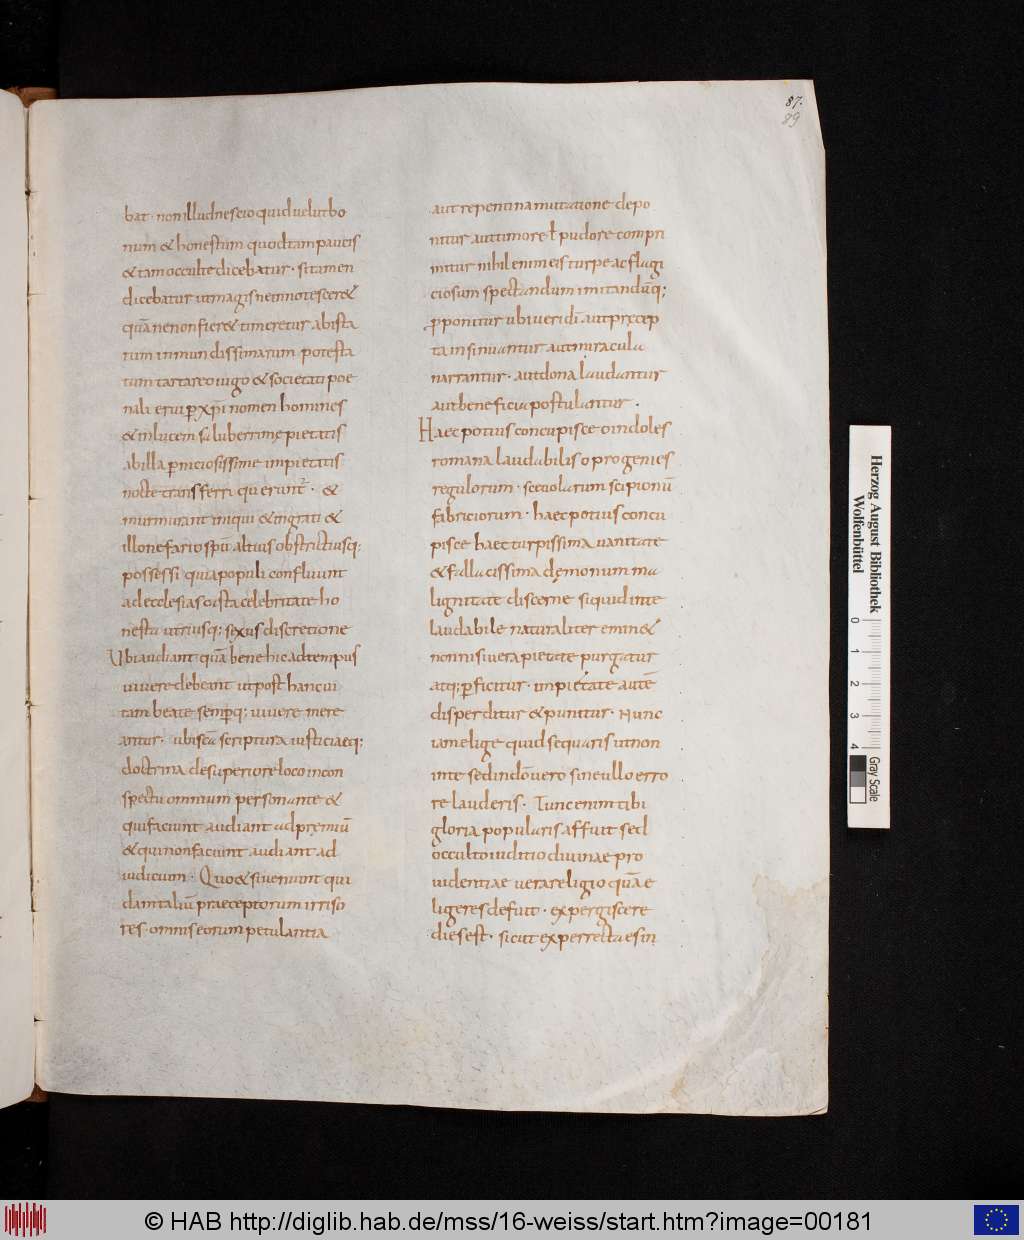 87.
89
bat · non illud nescio quid uelut bo
num & honestum quod tam paucis
& tam occulte dicebatur · si tamen
dicebatur ut magis ne innotescer&
quā ne non fier& timeretur ab ista
rum inmundissimarum potesta
tum tartareo iugo & societati poe
nali erui ꝑ xp̄i nomen homines
& in lucem saluberrime pietatis
ab illa ꝑniciosissime impietatis
nocte transferri querunt̄ · &
murmurant iniqui & ingrati &
illo nefario spū altius obstrictiusq;
possessi quia populi confluunt
ad ecclesias casta celebritate ho
nesta utriusq; sexus discretione
Ubi audiant quā bene hic ad tempus
uiuere debeant ut post hanc ui
tam beate semꝑq; uiuere mere
antur · ubi scā scriptura iusticiaeq;
doctrina de superiore loco in con
spectu omnium personante &
qui faciunt audiant ad premiū
& qui non faciunt audiant ad
iudicium · Quo & si ueniunt qui
dam talium praeceptorum irriso
res · omnis eorum petulantia
aut repentina mutatione depo
nitur aut timore ł pudore compri
mitur nihil enim eis turpe ac flagi
ciosum spectandum imitandūq;
ꝓponitur ubi ueri dī aut precep
ta insinuantur aut miracula
narrantur · aut dona laudantur
aut beneficia postulantur ·
Haec potius concupisce o indoles
romana laudabilis o progenies
regulorum · sceuolarum scipionū
fabriciorum · haec potius concu
pisce haec turpissima uanitate
& fallacissima demonum ma
lignitate discerne si quid in te
laudabile naturaliter emin&
non nisi uera pietate purgatur
atq; ꝑficitur · impietate autē
disperditur & punitur · Nunc
iam elige quid sequaris ut non
in te sed in dō uero sine ullo erro
re lauderis · Tunc enim tibi
gloria popularis affuit sed
occulto iuditio diuinae pro
uidentiae uera religio quā e
ligeres defuit · expergiscere
dies est · sicut experrecta es in
Herzog August Bibliothek
Wolfenbüttel
0 1 2 3 4
Gray Scale
© HAB http://diglib.hab.de/mss/16-weiss/start.htm?image=00181